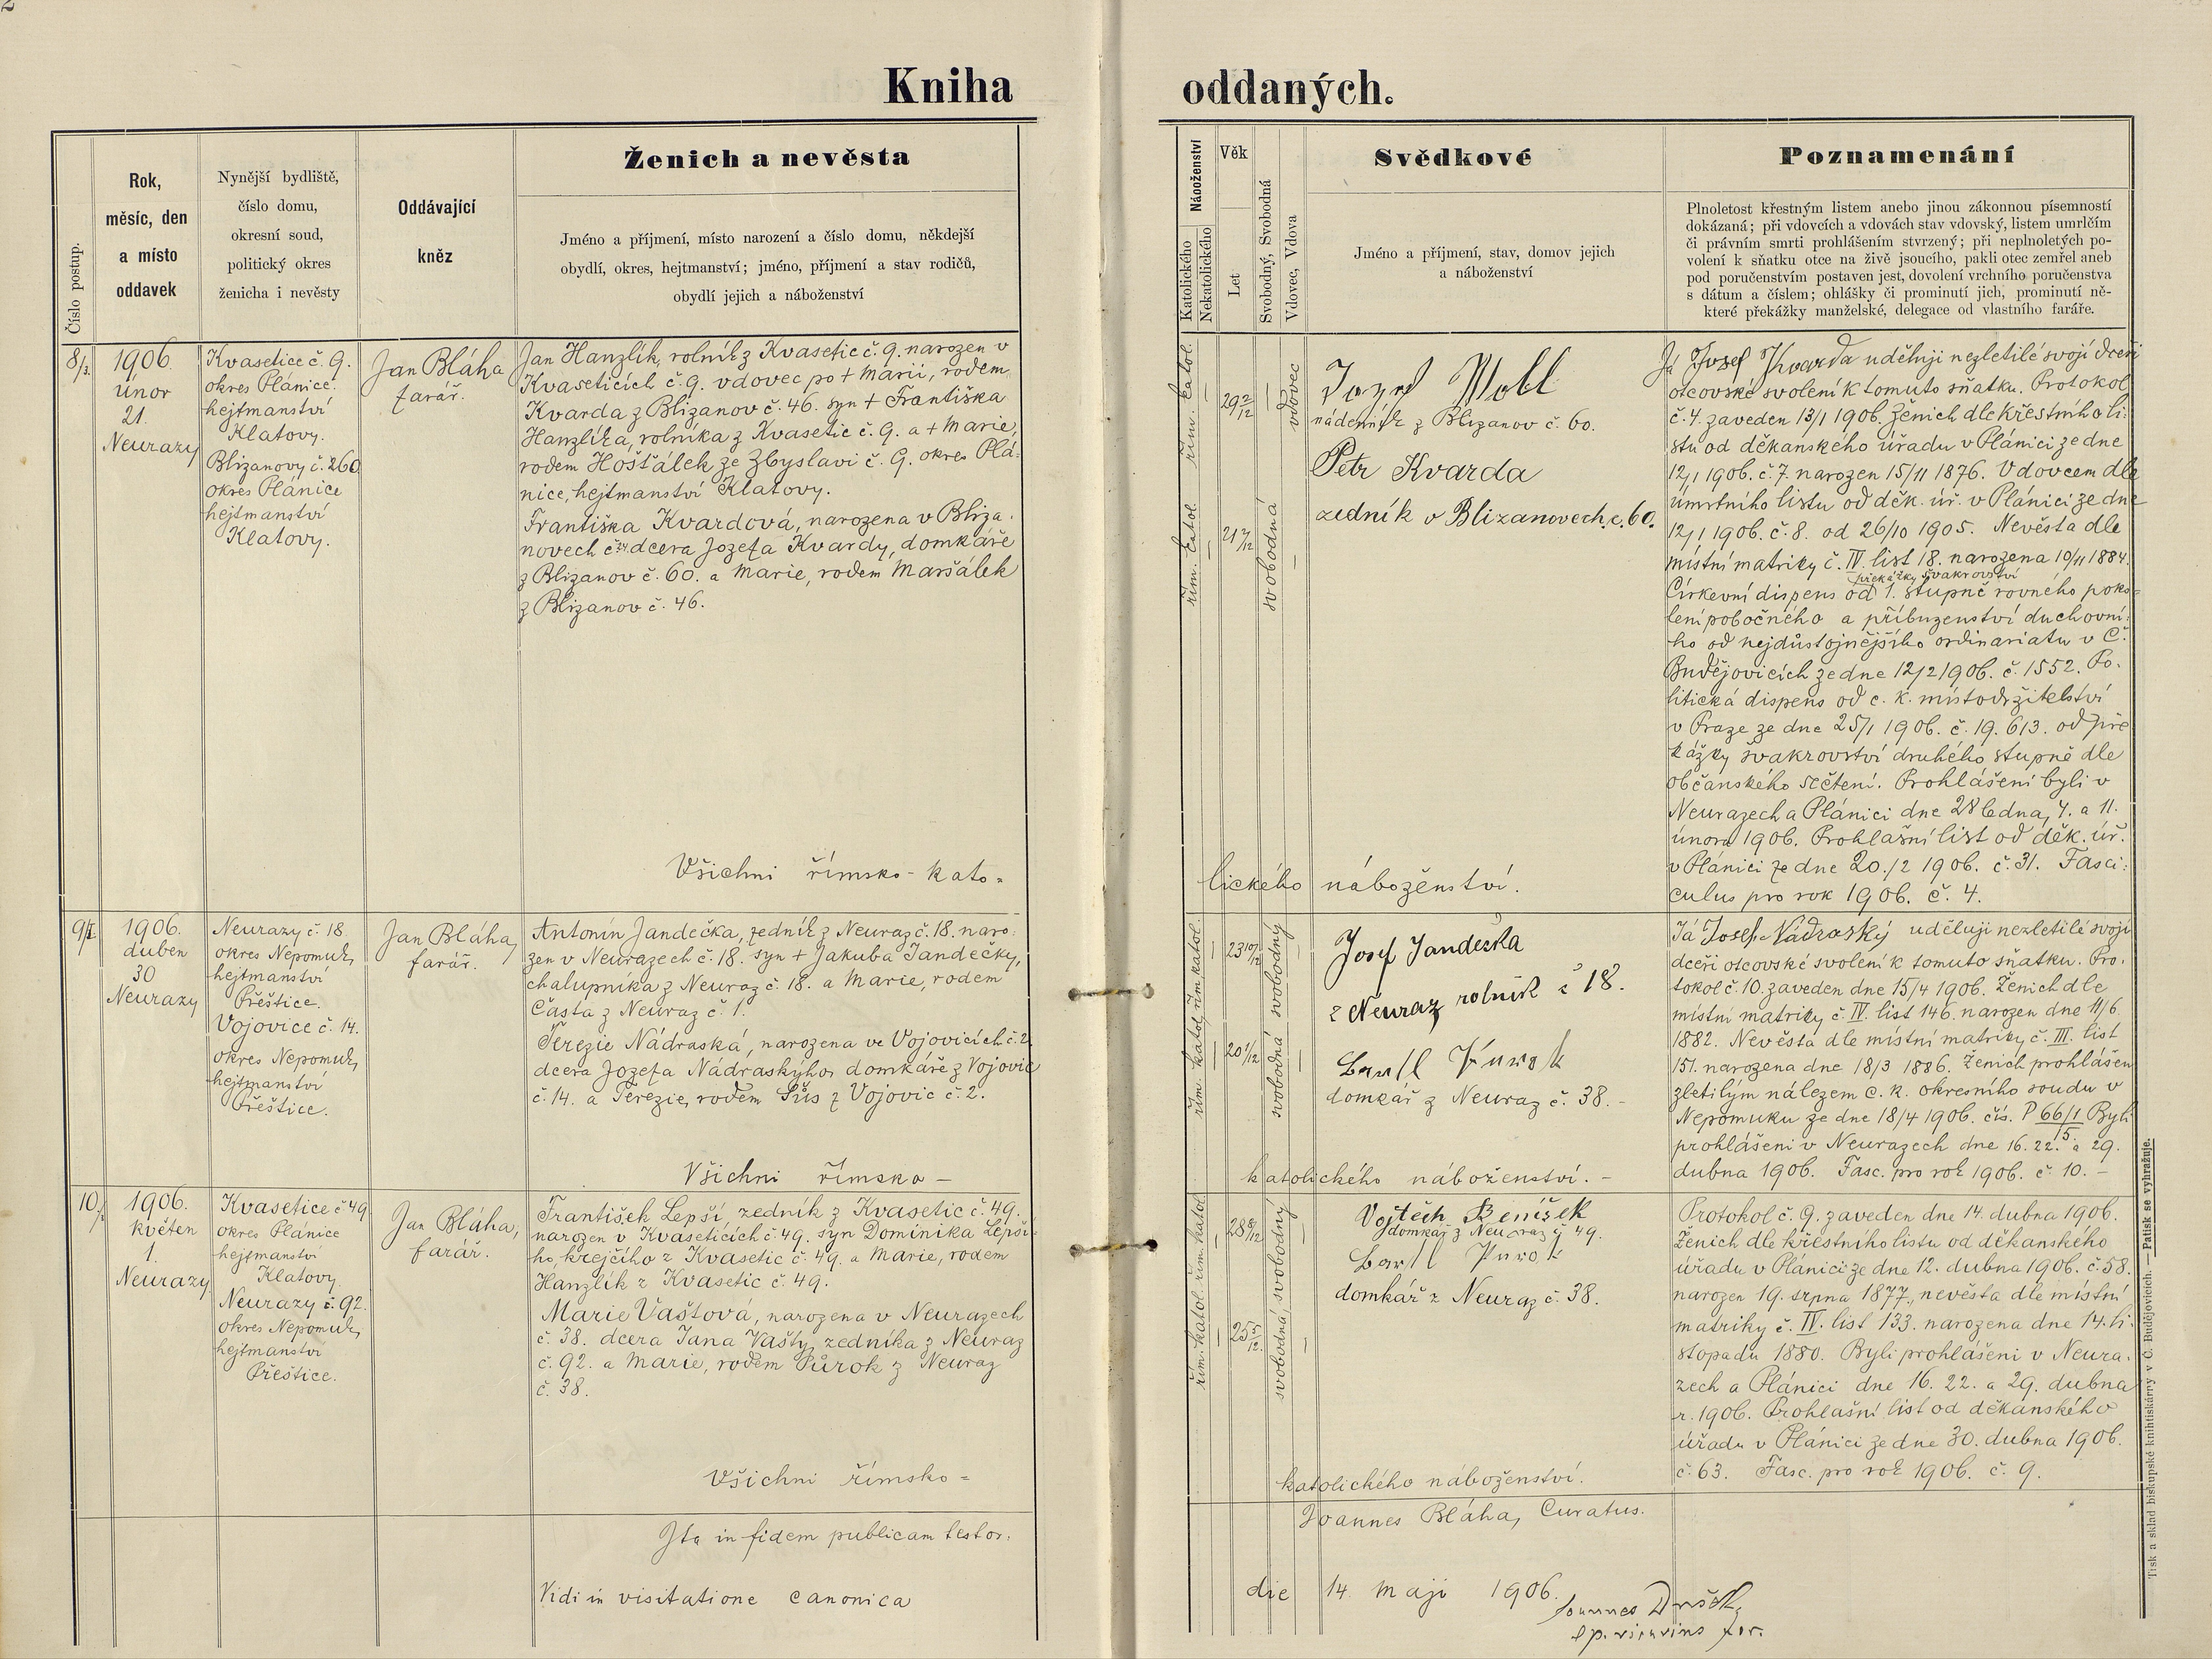 2
Kniha oddaných.
Číslo postup.
Rok,
měsíc, den
a místo
oddavek
Nynější bydliště,
číslo domu,
okresní soud,
politický okres
ženicha i nevěsty
Oddávající
kněz
Ženich a nevěsta
Jméno a příjmení, místo narození a číslo domu, někdejší
obydlí, okres, hejtmanství; jméno, příjmení a stav rodičů,
obydlí jejich a náboženství
Náboženství
Katolického
Nekatolického
Věk
Let
Svobodný, Svobodná
Vdovec, Vdova
Svědkové
Jméno a příjmení, stav, domov jejich
a náboženství
Poznamenání
Plnoletost křestným listem anebo jinou zákonnou písemností
dokázaná; při vdovcích a vdovách stav vdovský, listem umrlčím
či právním smrti prohlášením stvrzený; při neplnoletých po-
volení k sňatku otce na živě jsoucího, pakli otec zemřel aneb
pod poručenstvím postaven jest, dovolení vrchního poručenstva
s dátum a číslem; ohlášky či prominutí jich, prominutí ně-
které překážky manželské, delegace od vlastního faráře.
8/3.
1906.
únor
21.
Neurazy
Kvasetice č. 9.
okres Plánice.
hejtmanství
Klatovy.
Blizanovy č. 260
okres Plánice
hejtmanství
Klatovy.
Jan Bláha
farář.
Jan Hanzlík, rolník z Kvasetic č. 9. narozen v
Kvaseticích č. 9. vdovec po + Marii, rodem
Kvarda z Blizanov č. 46. syn + Františka
Hanzlíka, rolníka z Kvasetic č. 9. a + Marie,
rodem Hošťálek ze Zbyslavi č. 9. okres Plá-
nice, hejtmanství Klatovy.
Františka Kvardová, narozena v Bliza-
novech č. dcera Jozefa Kvardy, domkáře
z Blizanov č. 60. a Marie, rodem Maršálek
z Blizanov č. 46.
Všichni římsko-kato=
lického náboženství.
řím. katol.
29 2/12
vdovec
řím. katol
21 3/12
svobodná
Jozef
nádenník z Blizanov č. 60.
Petr Kvarda
zedník v Blizanovech č. 60.
Já Josef Kvarda uděluji nezletilé svojí dceři
otcovské svolení k tomuto sňatku. Protokol
č. 4. zaveden 13/1 1906. Ženich dle křestního li-
stu od děkanského úřadu v Plánici ze dne
12/1 1906. č. 7. narozen 15/11 1876. Vdovcem dle
úmrtního listu od děk. úř. v Plánici ze dne
12/1 1906. č. 8. od 26/10 1905. Nevěsta dle
místní matriky č. IV. list 18. narozena 10/11 1884.
překážky švakrovství
Církevní dispens od 1. stupně rovného poko-
lení pobočného a příbuzenství duchovní-
ho od nejdůstojnějšího ordinariatu v Č.
Budějovicích ze dne 12/2 1906. č. 1552. Po-
litická dispens od c. k. místodržitelství
v Praze ze dne 25/1 1906. č. 19.613. od pře
kážky švakrovství druhého stupně dle
občanského sečtení. Prohlášeni byli v
Neurazech a Plánici dne 28 ledna, 4. a 11.
února 1906. Prohlašní list od děk. úř.
v Plánici ze dne 20./2 1906. č. 31. Fasci-
culus pro rok 1906. č. 4.
9/I.
1906.
duben
30
Neurazy
Neurazy č. 18.
okres Nepomuk,
hejtmanství
Přeštice.
Vojovice č. 14.
okres Nepomuk,
hejtmanství
Přeštice.
Jan Bláha,
farář.
Antonín Jandečka, zedník z Neuraz č. 18. naro-
zen v Neurazech č. 18. syn + Jakuba Jandečky,
chalupníka z Neuraz č. 18. a Marie, rodem
Časta z Neuraz č. 1.
Terezie Nádraská, narozena ve Vojovicích č. 2
dcera Jozefa Nádraskýho, domkáře z Vojovic
č. 14. a Terezie, rodem Šůs z Vojovic č. 2.
Všichni římsko –
katolického náboženství. –
řím. katol. řím. katol.
23 10/12
svobodný
20 1/12
svobodná
Josef Jandečka
z Neuraz rolník č 18.
domkář z Neuraz č. 38. –
Já Josef Nádraský uděluji nezletilé svojí
dceři otcovské svolení k tomuto sňatku. Pro-
tokol č. 10. zaveden dne 15/4 1906. Ženich dle
místní matriky č. IV. list 146. narozen dne 11/6
1882. Nevěsta dle místní matriky č. III. list
151. narozena dne 18/3 1886. Ženich prohlášen
zletilým nálezem c. k. okresního soudu v
Nepomuku ze dne 18/4 1906. čís. P 66/1 Byli
5.
prohlášeni v Neurazech dne 16. 22. a 29.
dubna 1906. Fasc. pro rok 1906. č. 10. –
10/
1906.
květen
1.
Neurazy
Kvasetice č 49
okres Plánice
hejtmanství
Klatovy.
Neurazy č. 92.
okres Nepomuk,
hejtmanství
Přeštice.
Jan Bláha,
farář.
František Lepší, zedník z Kvasetic č. 49.
narozen v Kvaseticích č. 49. syn Dominika Lepší-
ho, krejčího z Kvasetic č. 49. a Marie, rodem
Hanzlík z Kvasetic č. 49.
Marie Vaštová, narozena v Neurazech
č. 38. dcera Jana Vašty, zedníka z Neuraz
č. 92. a Marie, rodem Půrok z Neuraz
č. 38.
Všichni římsko=
katolického náboženství.
řím. katol. řím. katol.
28 8/12
svobodný
25 5/12.
svobodná,
Vojtěch Beníšek
domkář z Neuraz č 49.
domkář z Neuraz č. 38.
Protokol č. 9. zaveden dne 14. dubna 1906.
Ženich dle křestního listu od děkanského
úřadu v Plánici ze dne 12. dubna 1906. č. 58.
narozen 19. srpna 1877., nevěsta dle místní
matriky č. IV. list 133. narozena dne 14. li-
stopadu 1880. Byli prohlášeni v Neura-
zech a Plánici dne 16. 22. a 29. dubna
r. 1906. Prohlašní list od děkanského
úřadu v Plánici ze dne 30. dubna 1906.
č. 63. Fasc. pro rok 1906. č. 9.
Ita in fidem publicam testor.
Joannes Bláha, Curatus.
Vidi in visitatione canonica
die 14. maji 1906.
Joannes
Tisk a sklad biskupské knihtiskárny v Č. Budějovicích. — Patisk se vyhražuje.